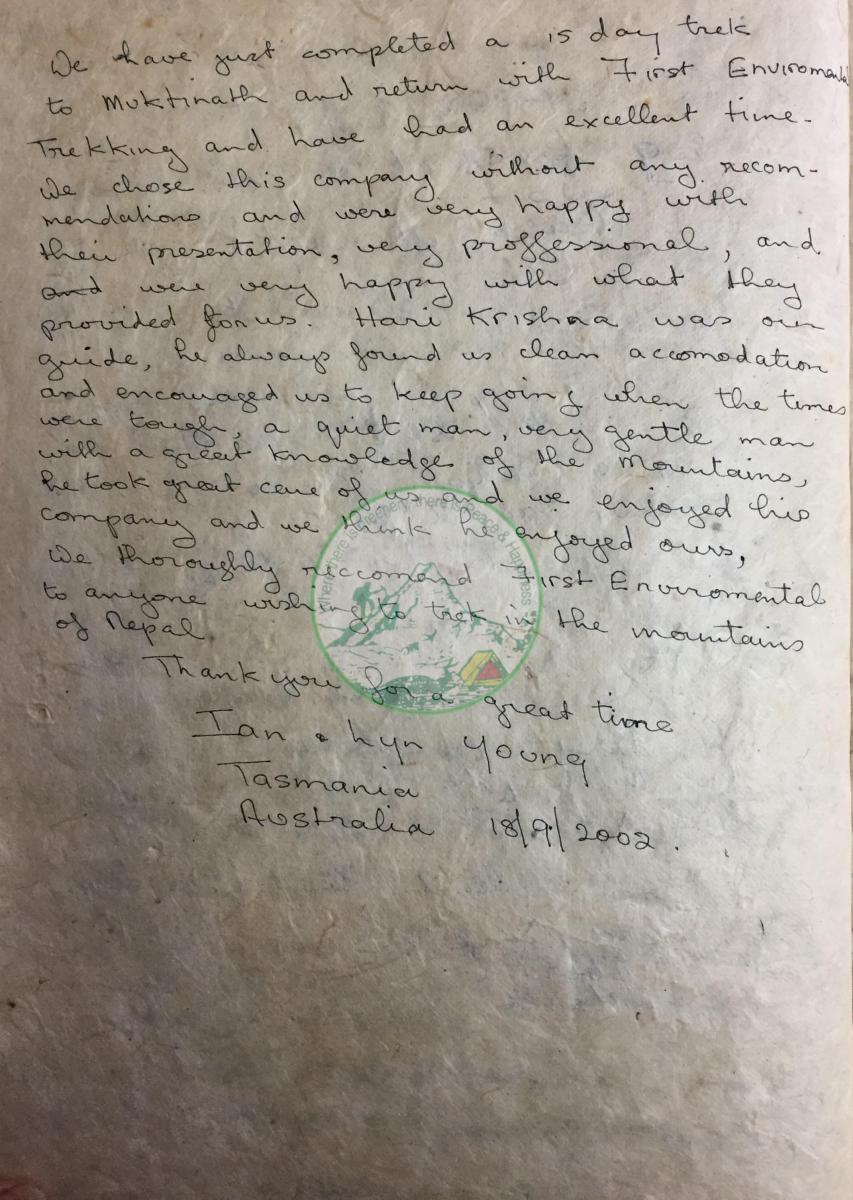 We have just completed a 15 day trek
to Muktinath and return with First Enviromental
Trekking and have had an excellent time.
We chose this company without any recom-
mendations and were very happy with
their presentation, very proffessional, and
and were very happy with what they
provided for us. Hari Krishna was our
guide, he always found us clean accomodation
and encouraged us to keep going when the times
were tough, a quiet man, very gentle man
with a great knowledge of the mountains,
he took great care of us and we enjoyed his
company and we think he enjoyed ours,
We thoroughly reccomend First Enviromental
to anyone wishing to trek in the mountains
of Nepal.
Thank you for a great time
Ian & Lyn Young
Tasmania
Australia 18/9/2002.
where there is greenery, there is peace & happiness